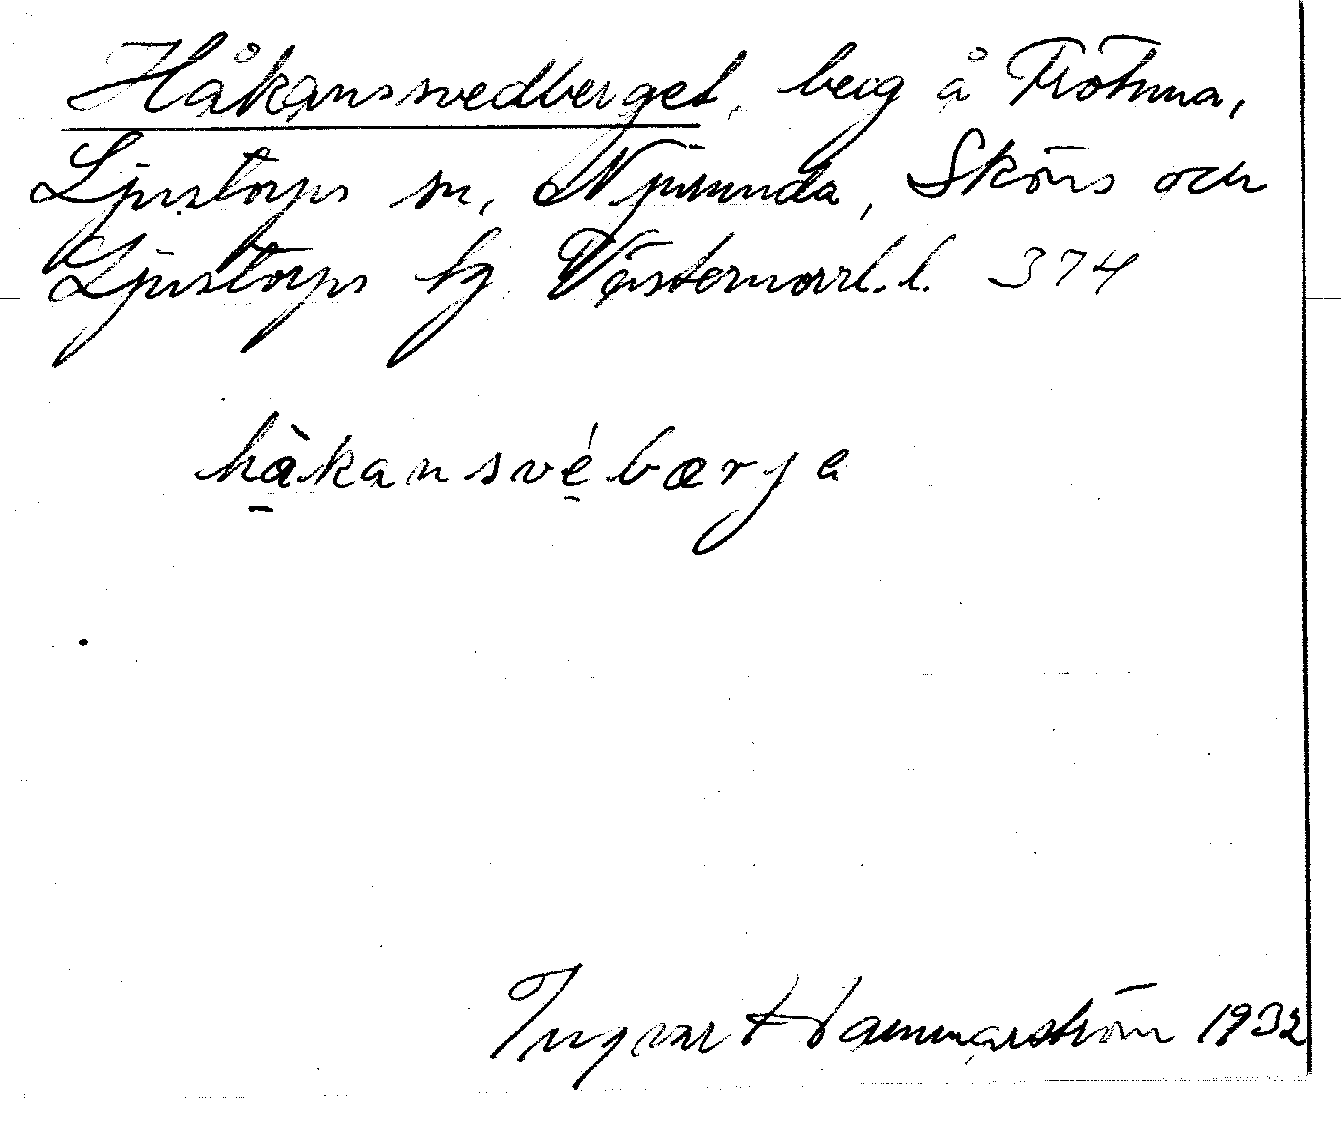 Håkanssvedberget, berg å Frötuna,
Ljustorps sn, Njurunda, Sköns och
Ljustorps tg Västernorrl. l. 374
håkansvébærje
Ingvar Hammarström 1932